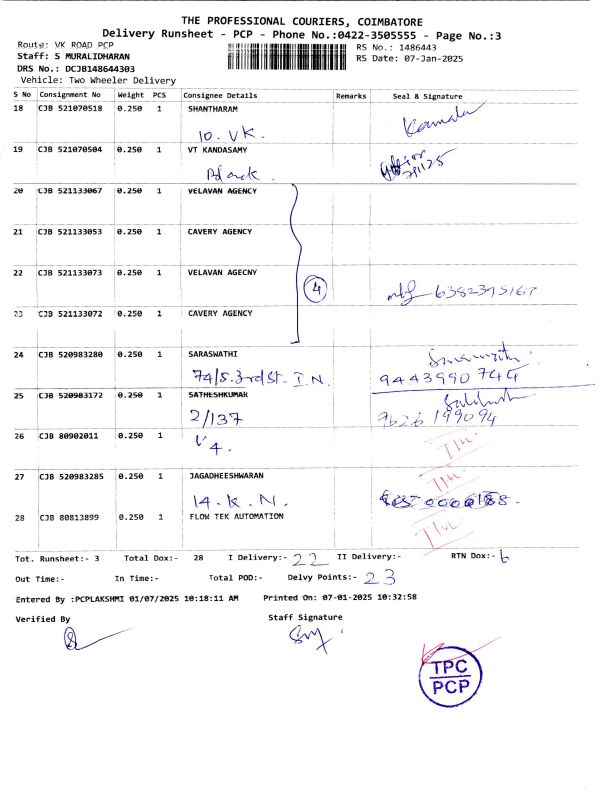 THE PROFESSIONAL COURIERS, COIMBATORE
Delivery Runsheet - PCP - Phone No.:0422-3505555 - Page No.:3
Route: VK ROAD PCP
RS No.: 1486443
Staff: S MURALIDHARAN
RS Date: 07-Jan-2025
DRS No.: DCJB148644303
Vehicle: Two Wheeler Delivery
S No Consignment No Weight PCS Consignee Details Remarks Seal & Signature
18 CJB 521070518 0.250 1 SHANTHARAM
10. VK. Kamala
19 CJB 521070504 0.250 1 VT KANDASAMY
20 CJB 521133067 0.250 1 VELAVAN AGENCY
21 CJB 521133053 0.250 1 CAVERY AGENCY
22 CJB 521133073 0.250 1 VELAVAN AGECNY
4
6382395167
23 CJB 521133072 0.250 1 CAVERY AGENCY
24 CJB 520983280 0.250 1 SARASWATHI
74/5. 3rd St. I.N. 9443990744
25 CJB 520983172 0.250 1 SATHESHKUMAR
2/137 199094
26 CJB 80902011 0.250 1
V4.
27 CJB 520983285 0.250 1 JAGADHEESHWARAN
14. K. N.
28 CJB 80813899 0.250 1 FLOW TEK AUTOMATION
Tot. Runsheet:- 3 Total Dox:- 28 I Delivery:- 22 II Delivery:- RTN Dox:- 6
Out Time:- In Time:- Total POD:- Delvy Points:- 23
Entered By :PCPLAKSHMI 01/07/2025 10:18:11 AM Printed On: 07-01-2025 10:32:58
Verified By Staff Signature
TPC
PCP